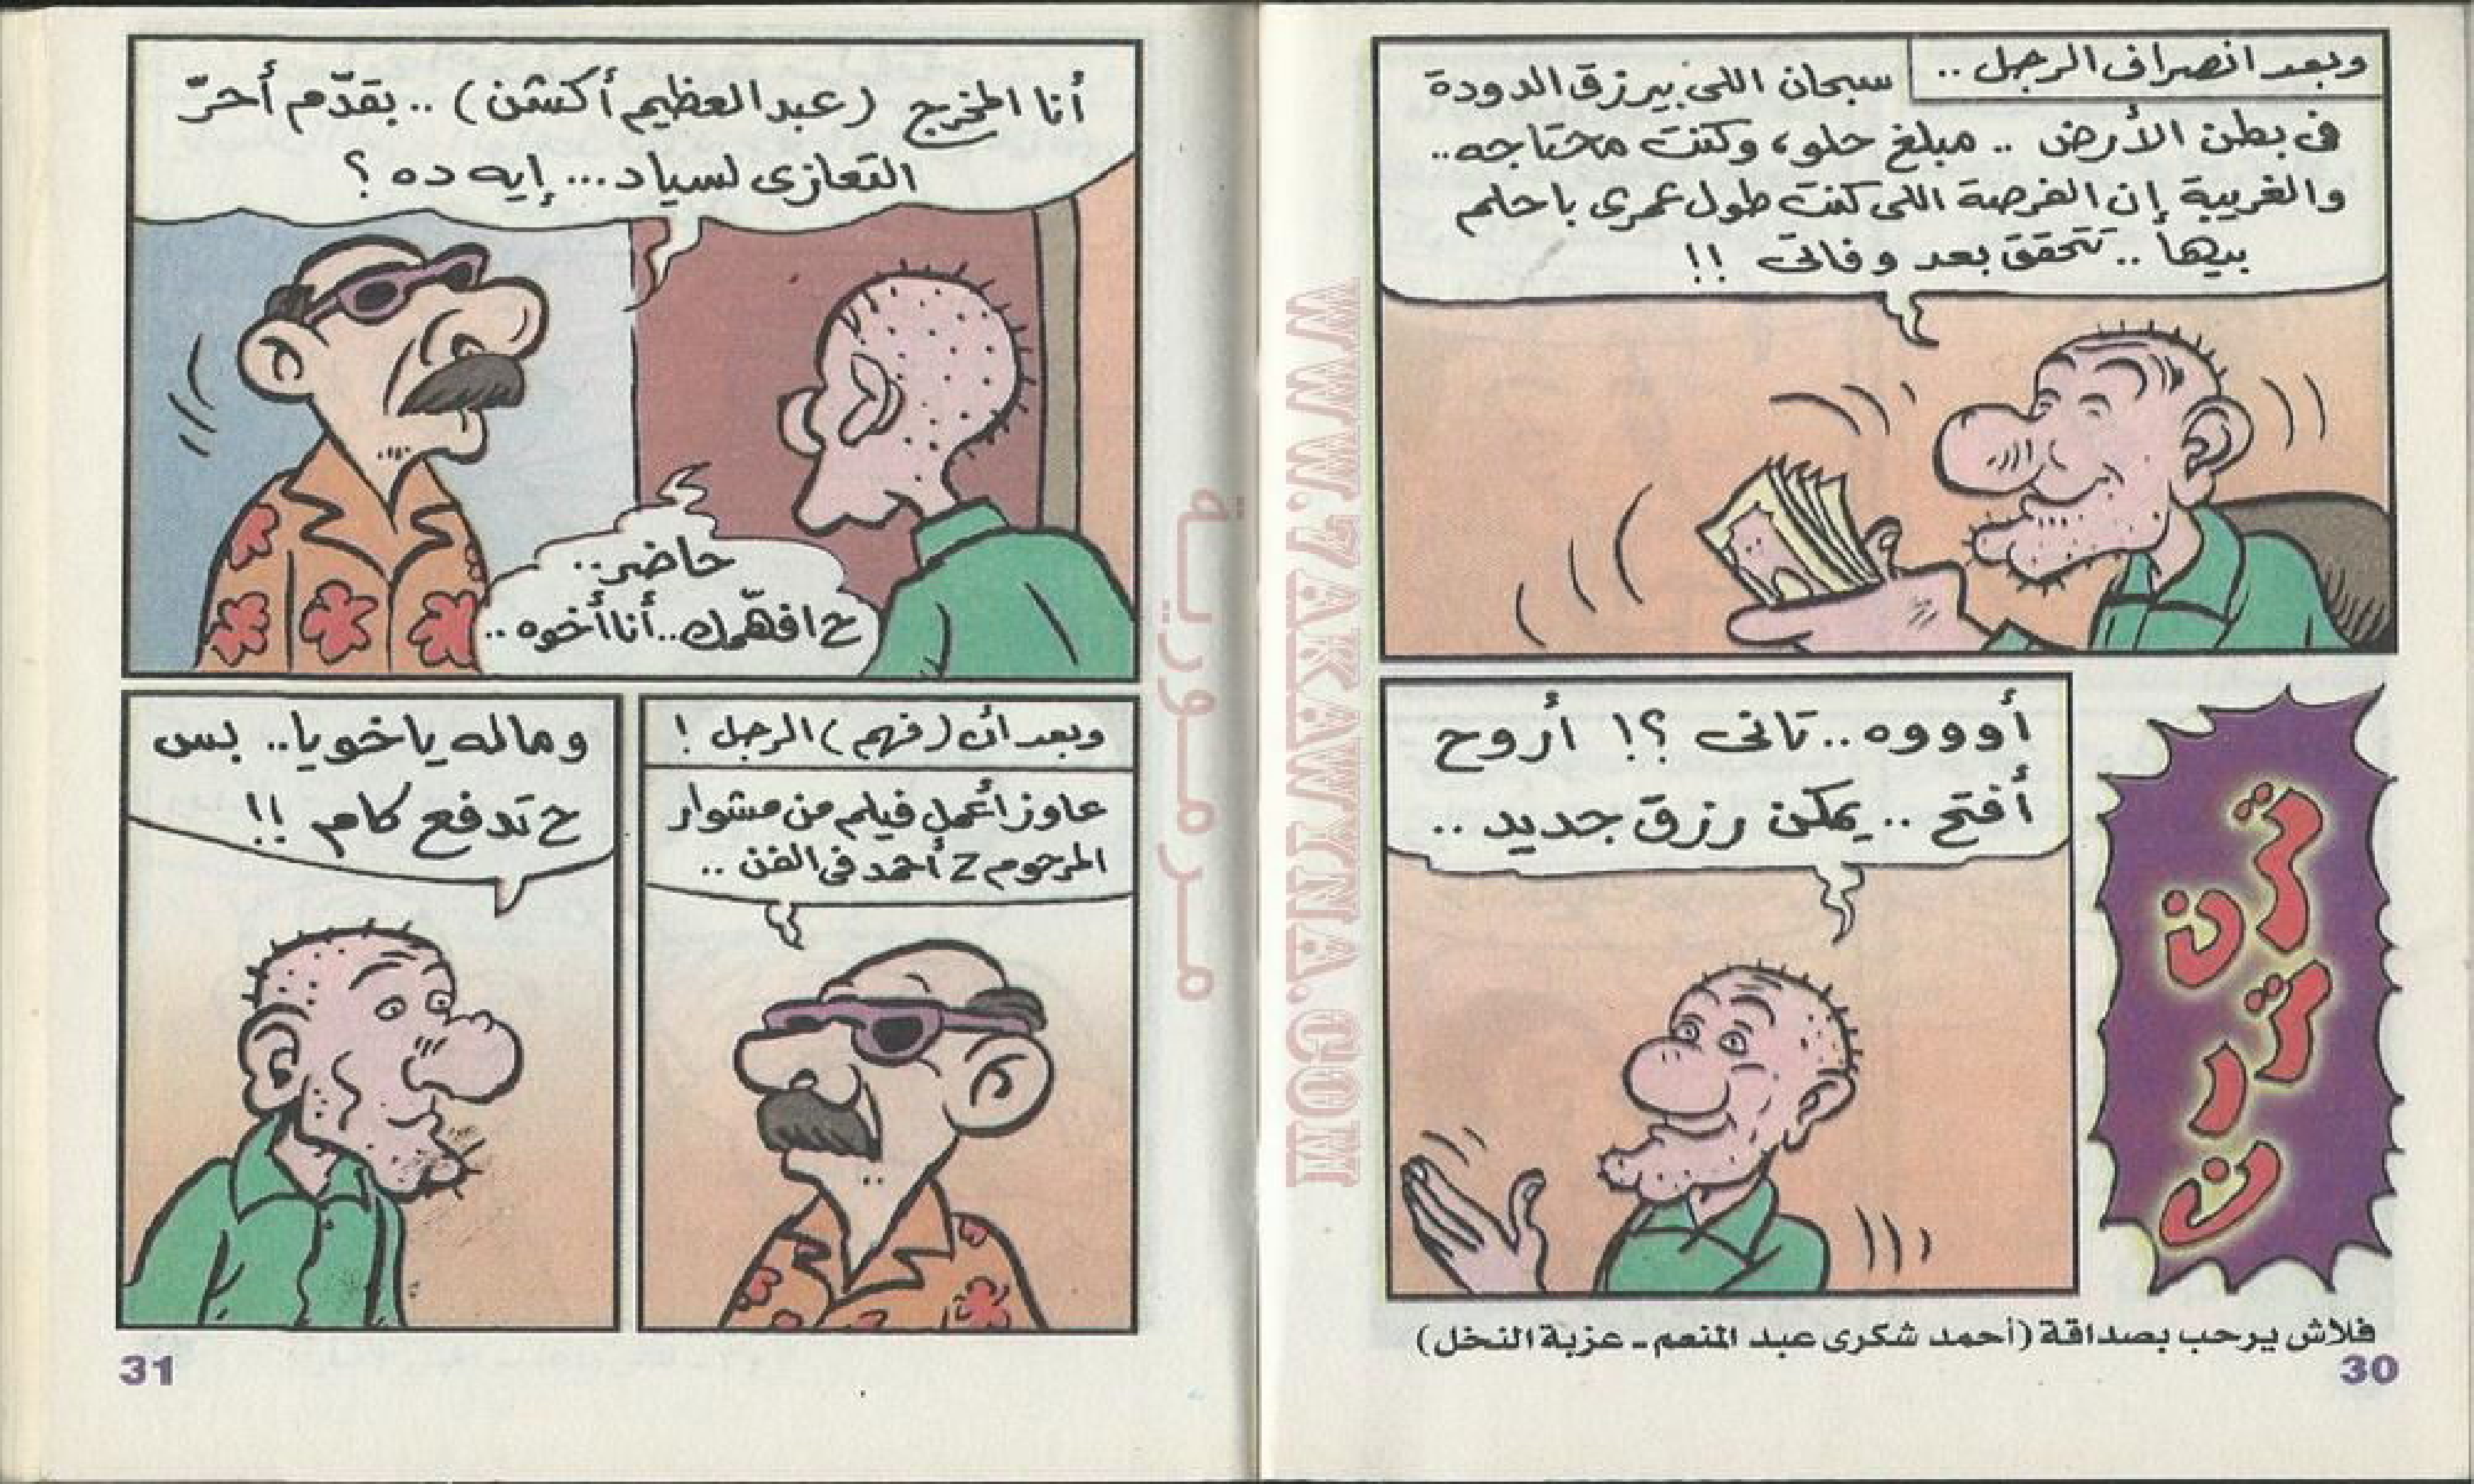 وبعد انصراف الرجل ..
سبحان اللى بيرزق الدودة
فى بطن الأرض .. مبلغ حلو، وكنت محتاجه..
والغريبة إن الفرصة اللى كنت طول عمرى باحلم
بيها .. تتحقق بعد وفاتى !!
ترن
ترررن
أوووه..تانى ؟! أروح
أفتح .. يمكن رزق جديد ..
فلاش يرحب بصداقة (أحمد شكرى عبد المنعم - عزبة النخل)
30
WWW.7AKAWYNA.COM
مرمورية
أنا المخرج (عبد العظيم أكشن) .. بقدّم أحرّ
التعازى لسياد... إيه ده ؟
حاضر..
ح افهّمك..أنا أخوه ..
وبعد أن (فهم) الرجل !
عاوز أعمل فيلم من مشوار
المرحوم Z أحمد فى الفن ..
وماله ياخويا.. بس
ح تدفع كام !!
31